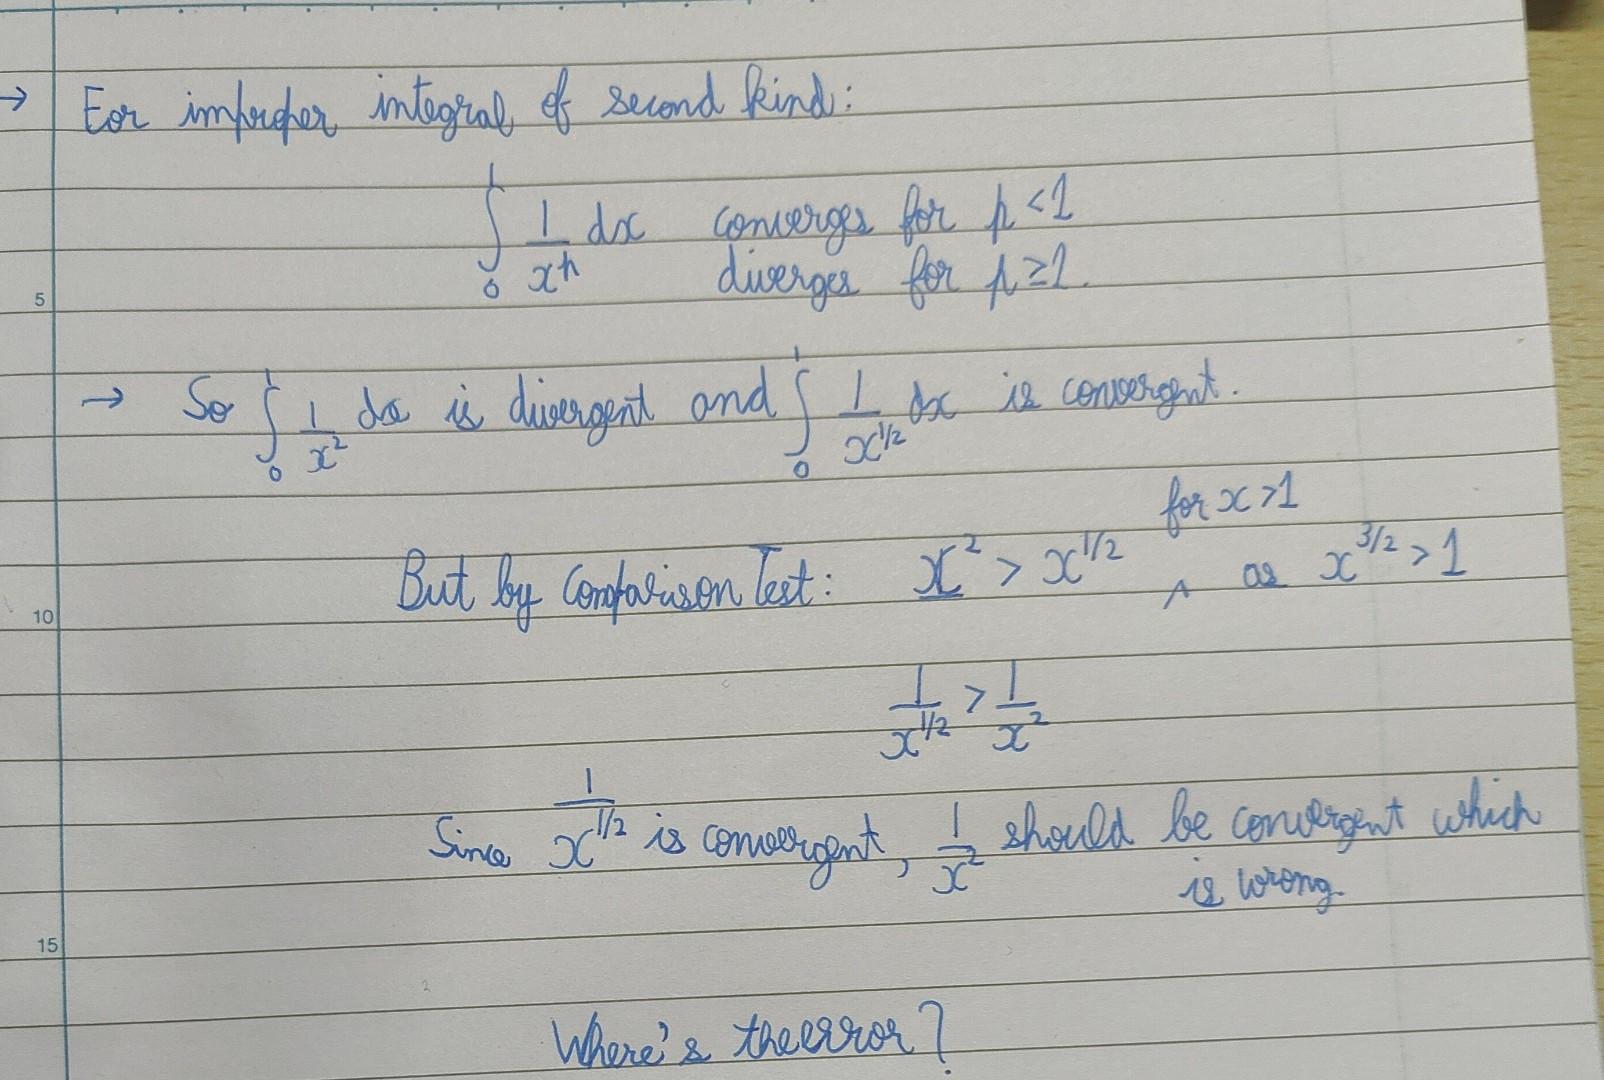 → For improper integral of second kind:
∫₀¹ 1/xᵖ dx converges for p < 1
diverges for p ≥ 1.
5
→ So ∫₀¹ 1/x² dx is divergent and ∫₀¹ 1/x^(1/2) dx is convergent.
for x > 1
But by Comparison Test: x² > x^(1/2) ^ as x^(3/2) > 1
10
1/x^(1/2) > 1/x²
Since 1/x^(1/2) is convergent, 1/x² should be convergent which
is wrong.
15
Where's the error?